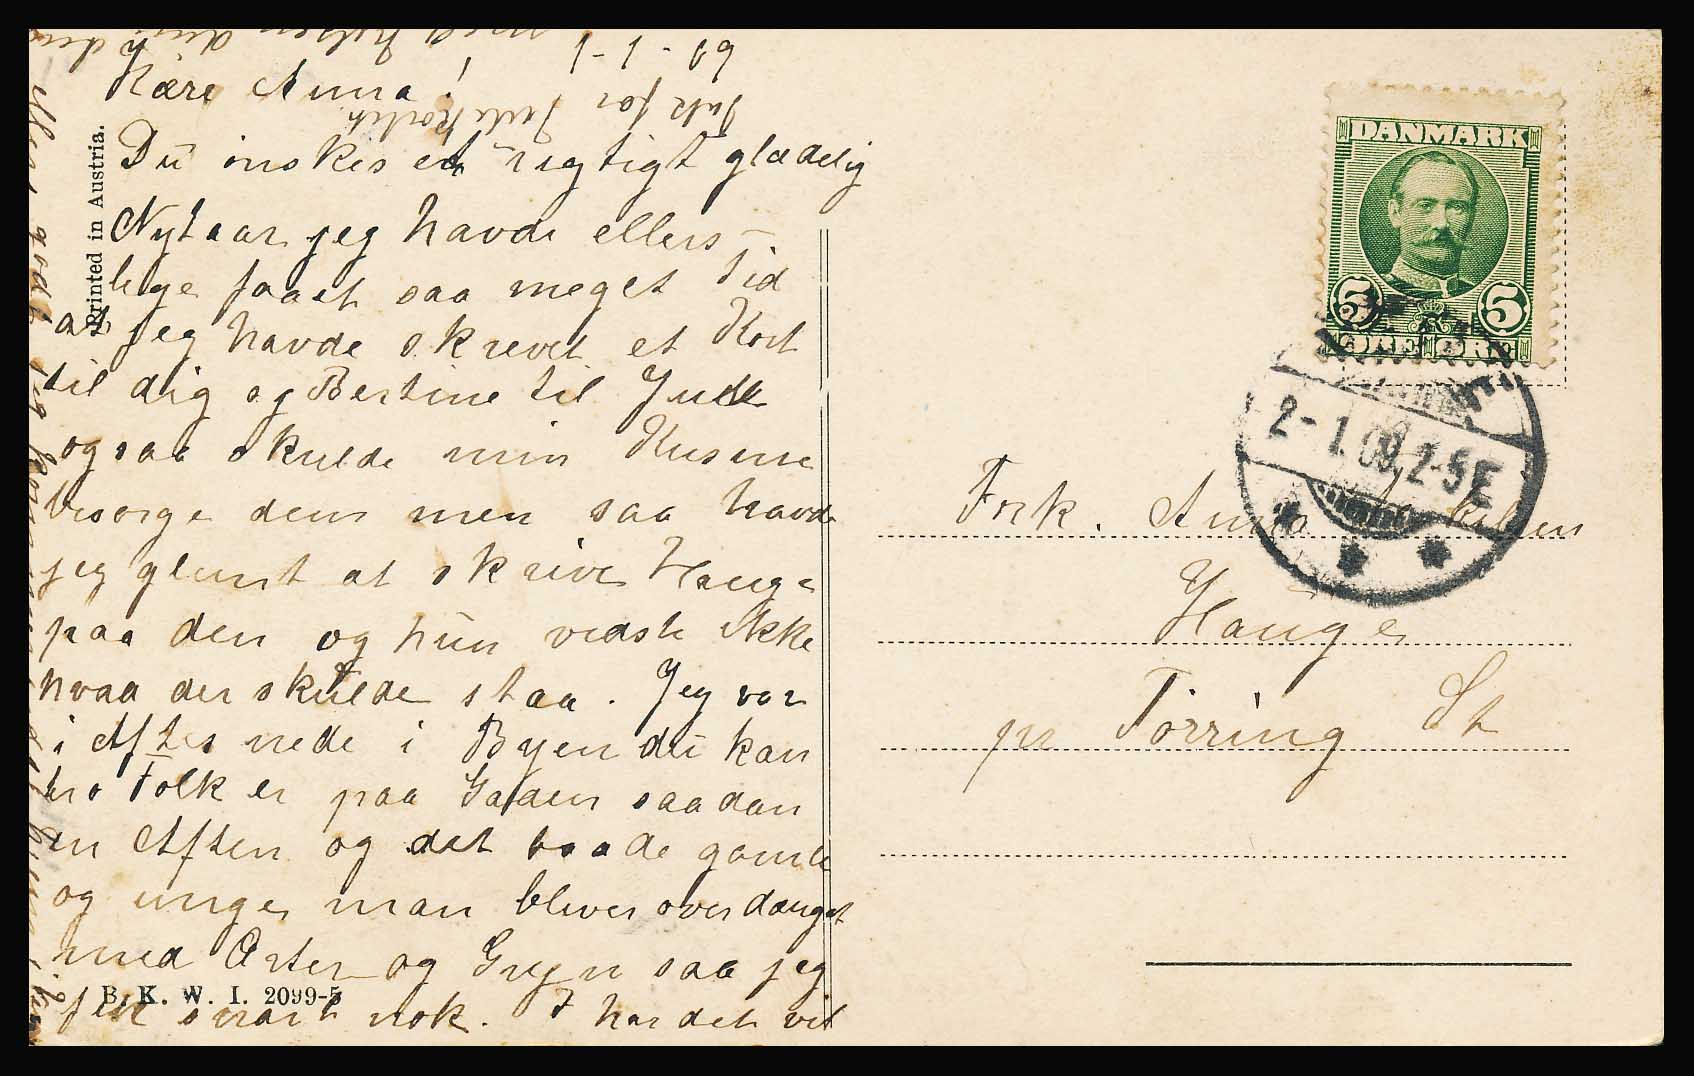 1-1-09
Tak for Julekortet
Kære Anna!
Du önskes et rigtigt glædelig
Nytaar jeg havde ellers
lige faaet saa meget Tid
at jeg havde skrevet et Kort
til dig og Bertine til Jul
og saa skulde min Kusine
besørge dem men saa havde
jeg glemt at skrive Hauge
paa den og hun vidste ikke
hvad der skulde staa. Jeg var
i Aftes nede i Byen du kan
tro Folk er paa Gaden saadan
en Aften og det baade gamle
og unge, man bliver overdænget
med Ærter og Gryn saa jeg
fik snart nok. I har det vel
Printed in Austria.
B. K. W. I. 2099-5
DANMARK
5 5
ØRE ØRE
2-1.09. 2-5 E
Frk. Anna
Hauge
pr Törring St